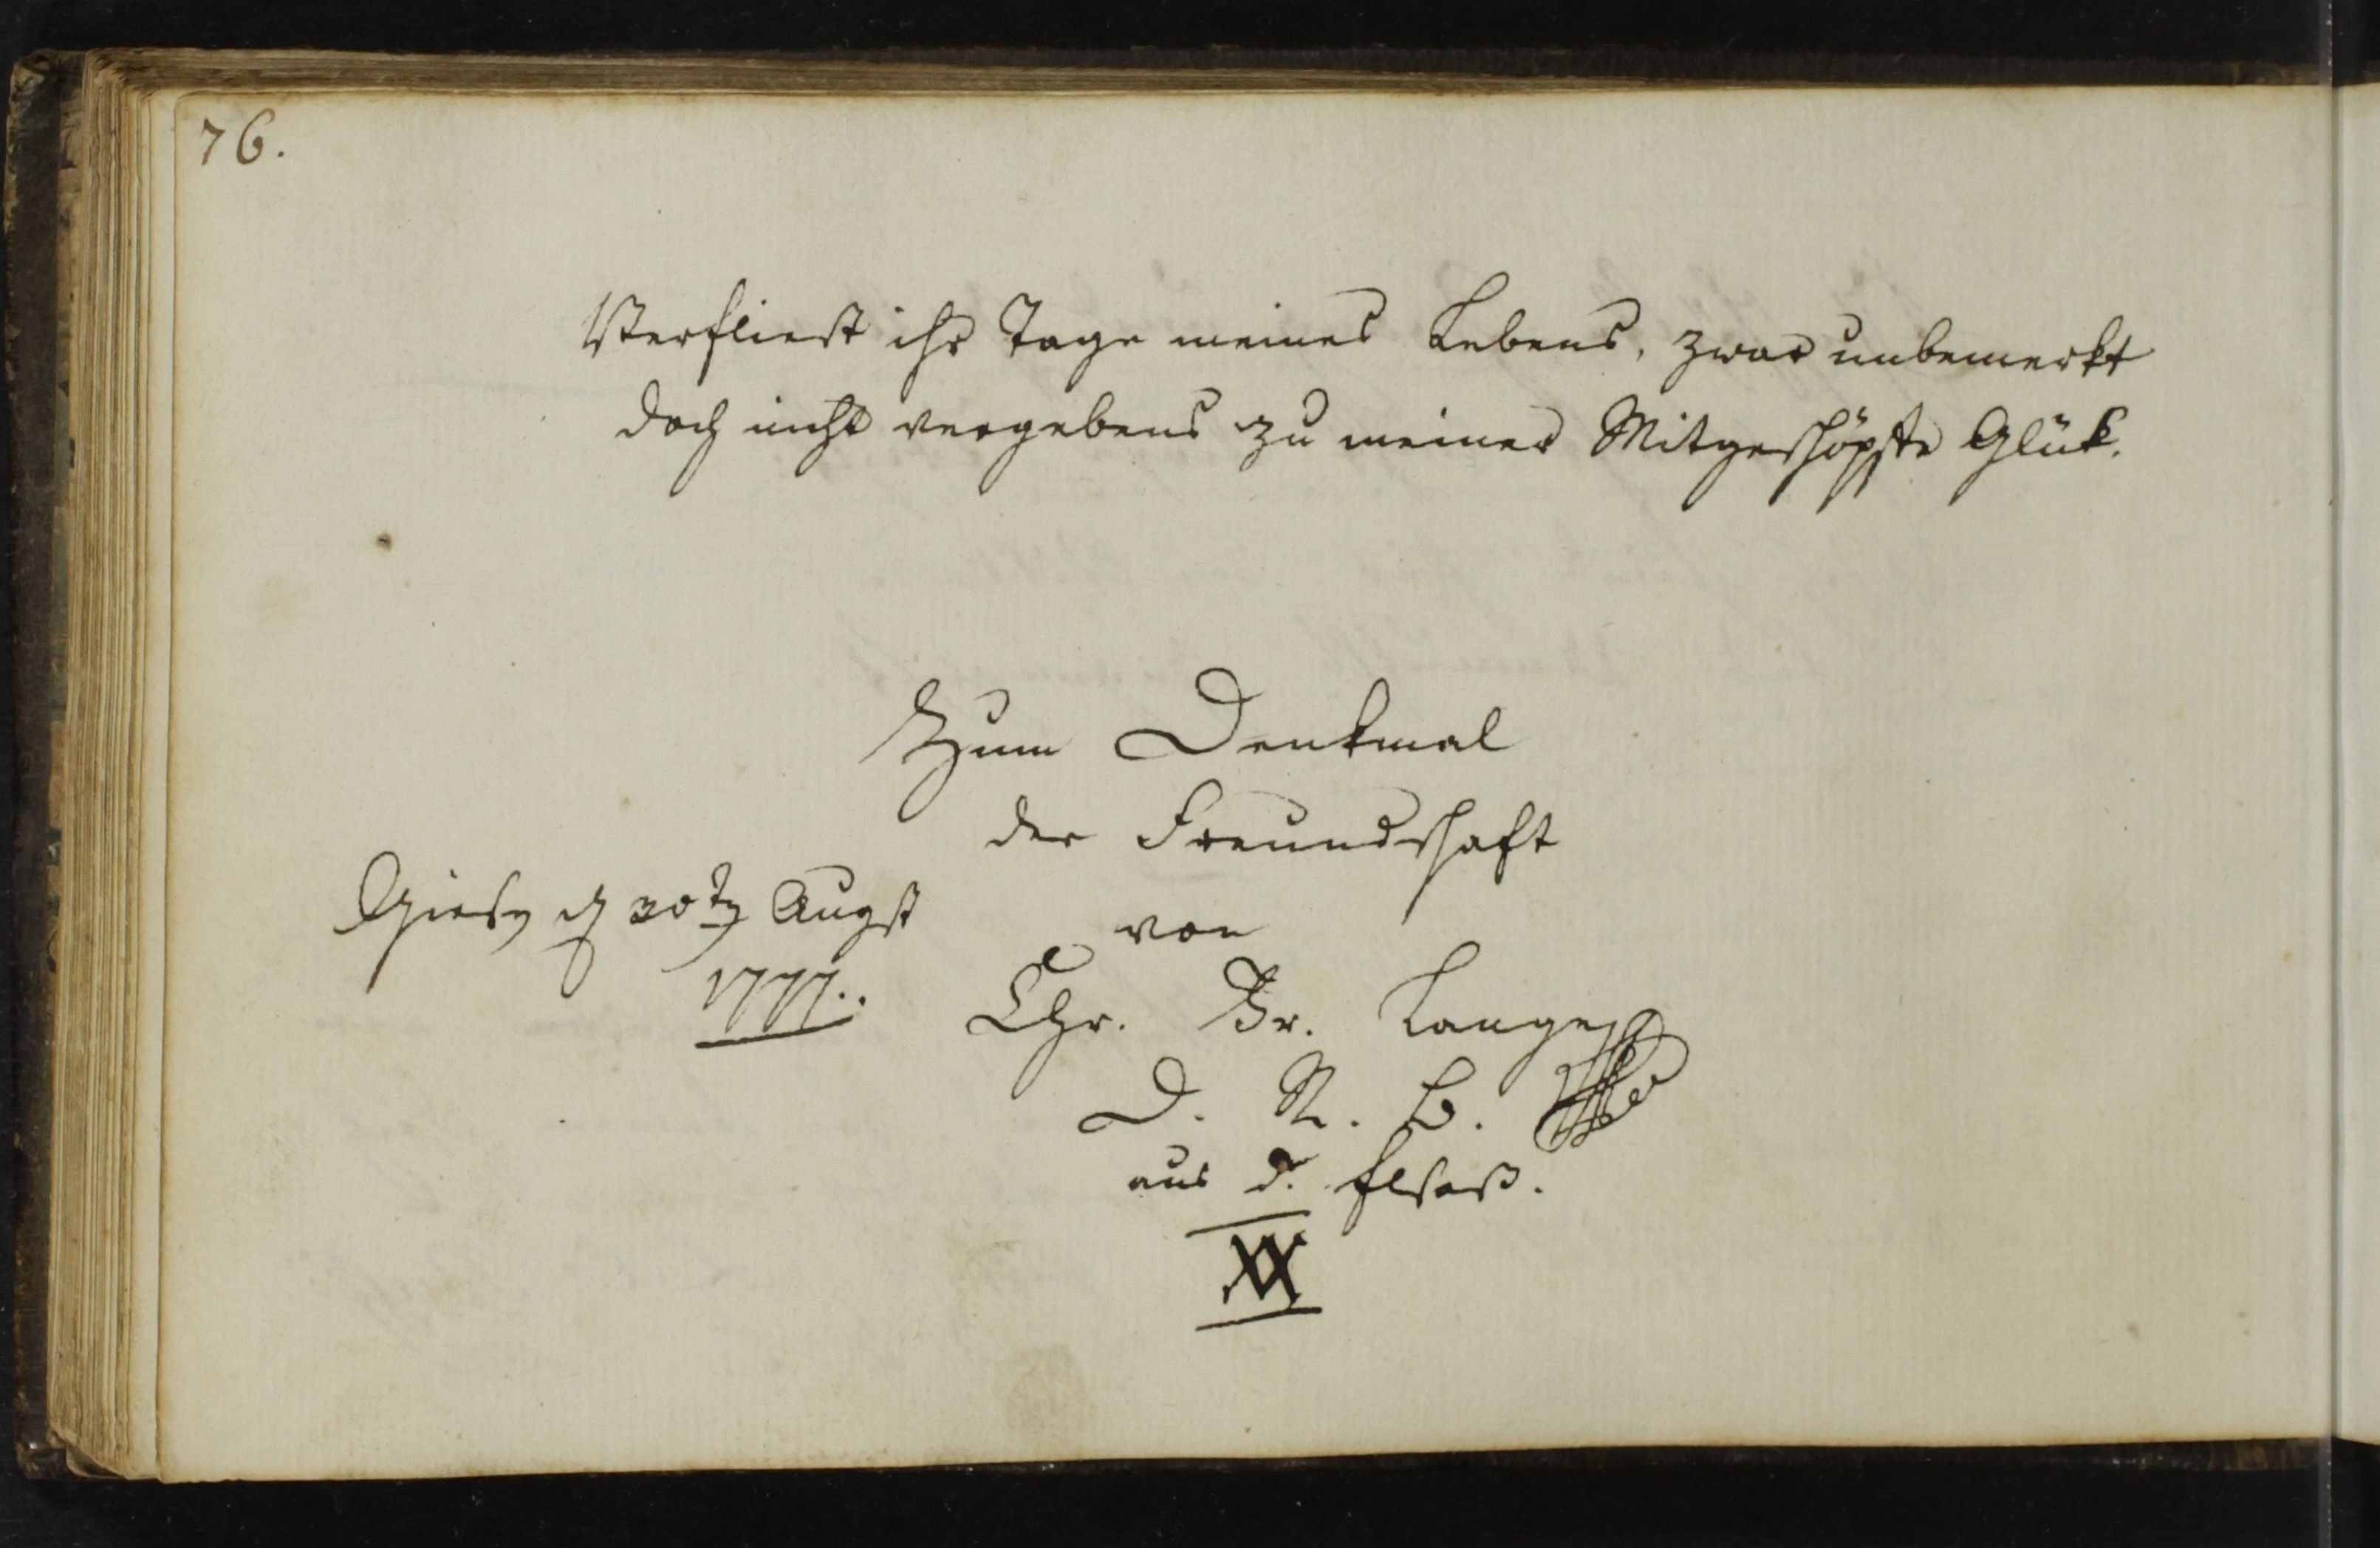 76.
Verfliest ihr Tage meines Lebens, zwar unbemerkt
doch nicht vergebens zu meiner Mitgeschöpfe Glük.
Zum Denkmal
der Freundschaft
von
Giesen d 20ten Augst
1777..
Chr. Fr. Lange
D. R. B.
aus d. Elsaß.